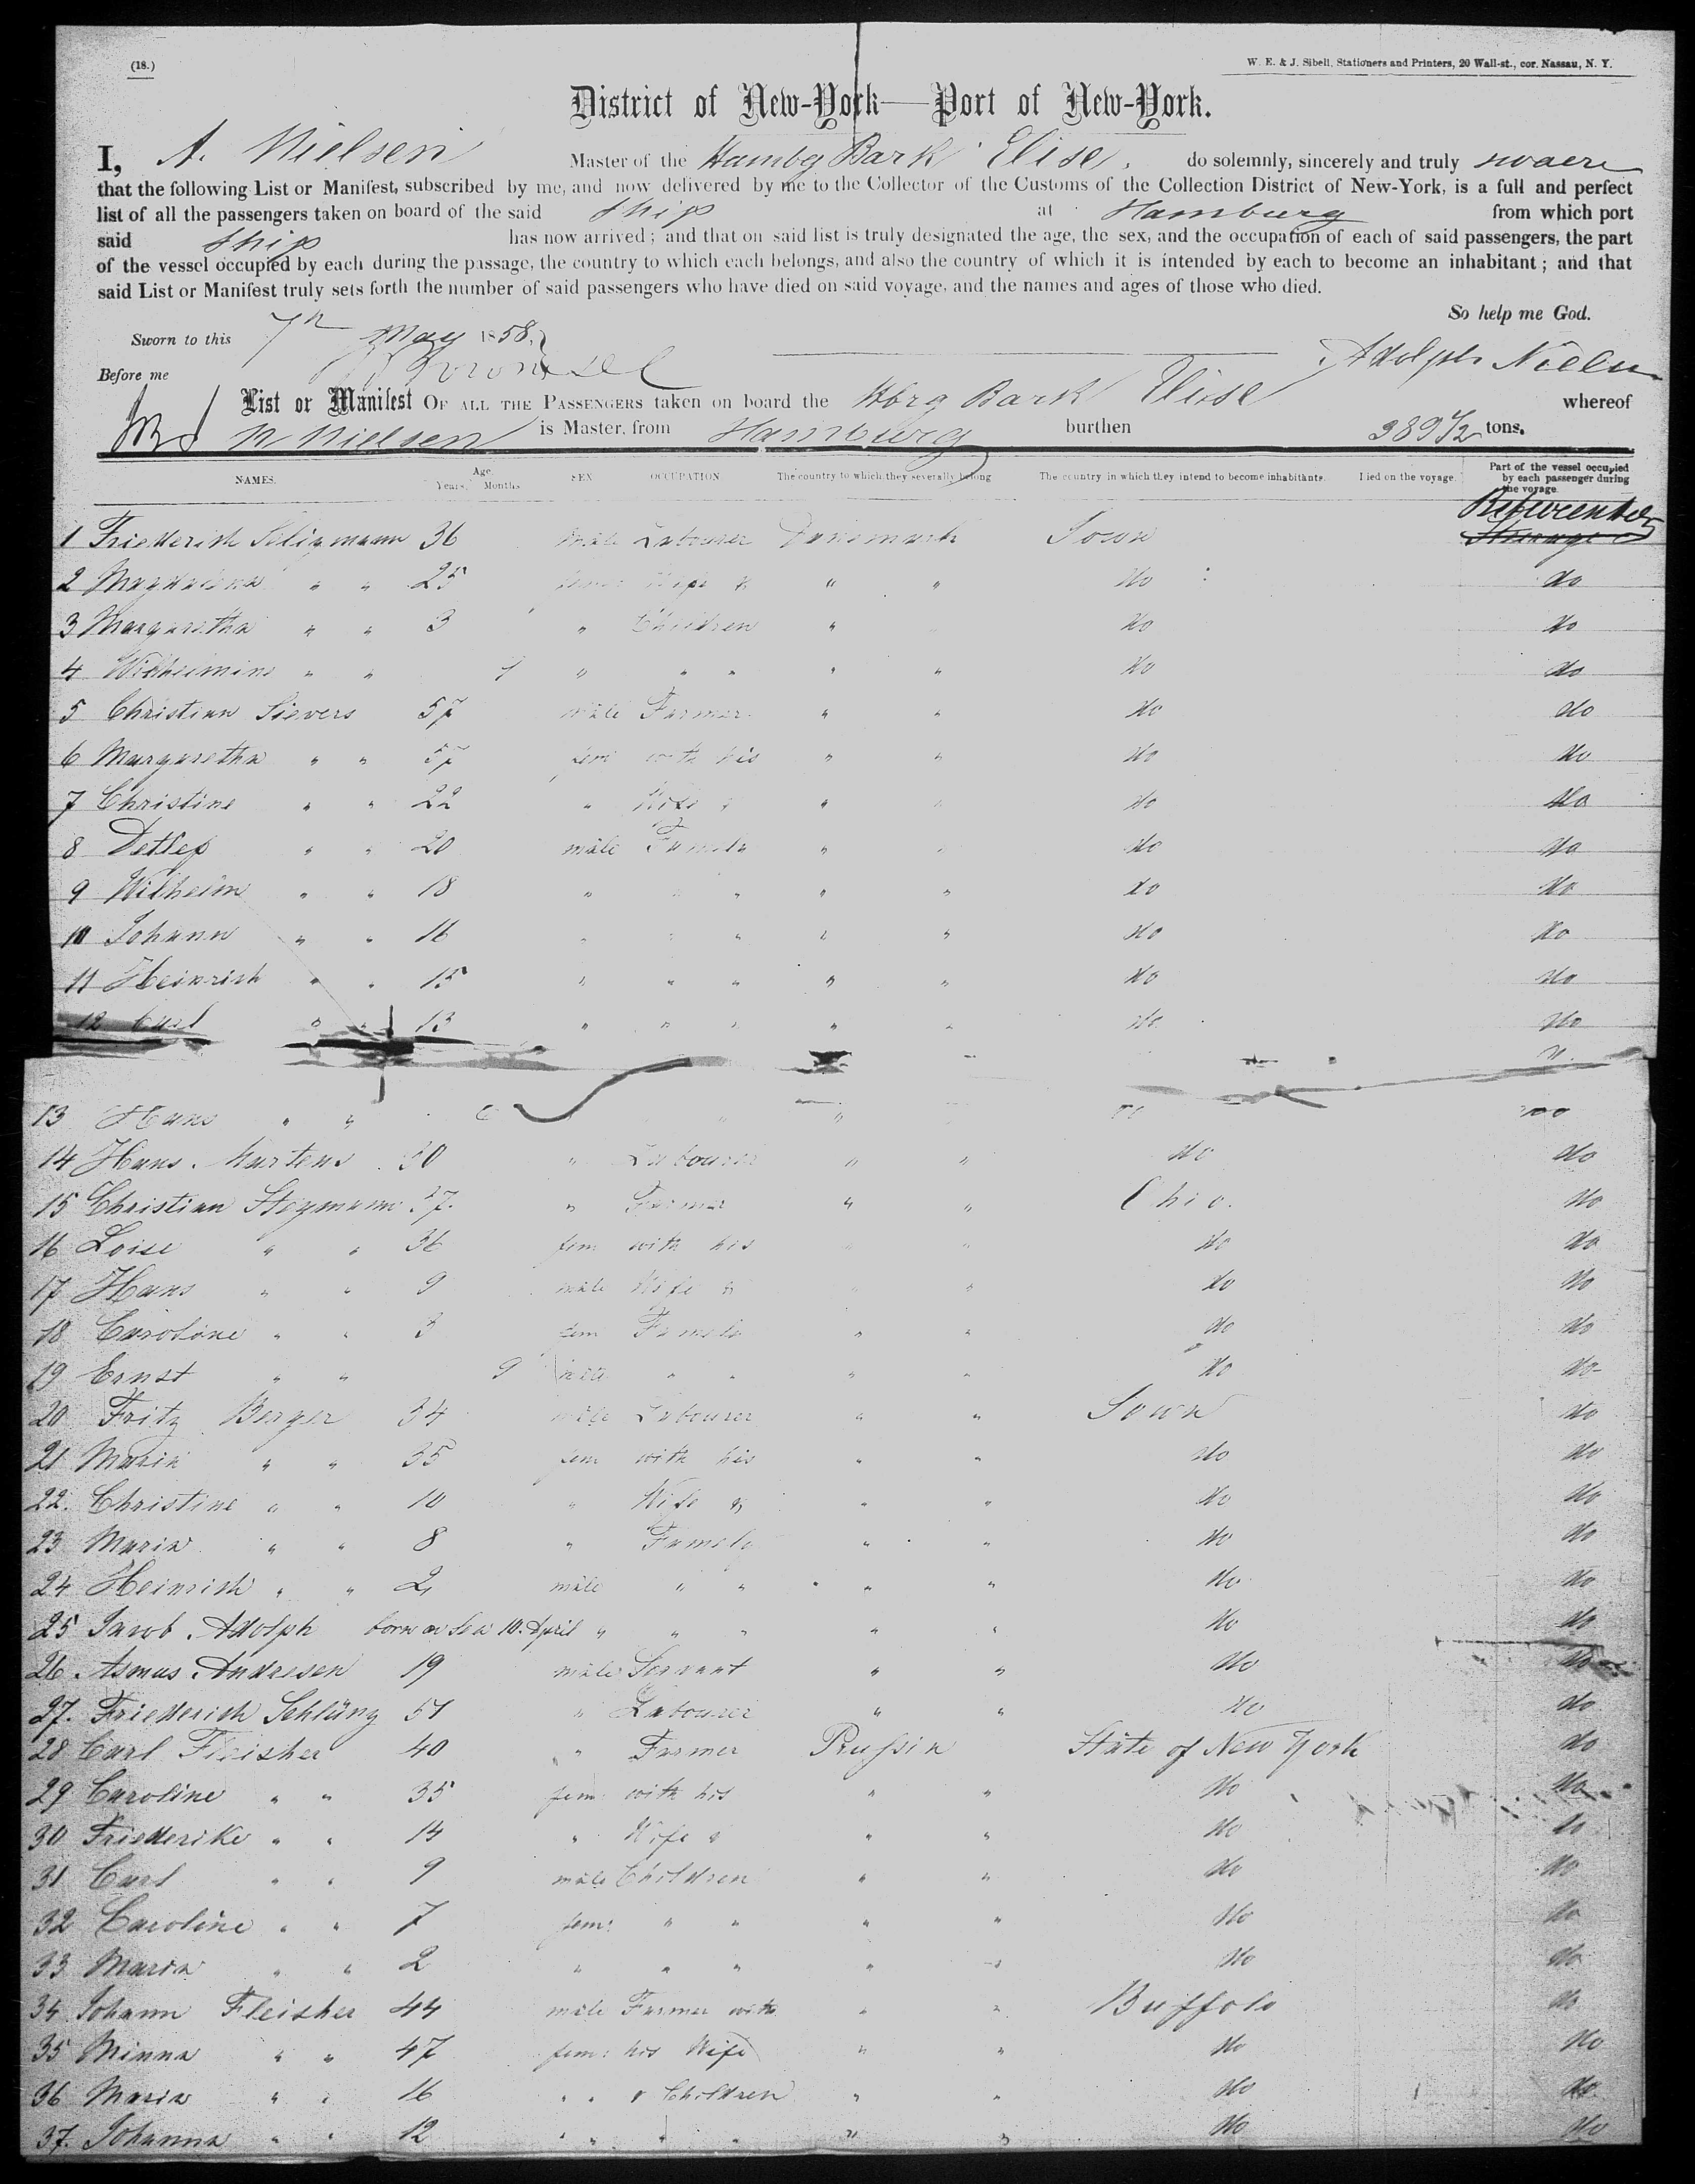 (18.)
W. E. & J. Sibell, Stationers and Printers, 20 Wall-st., cor. Nassau, N. Y.
District of New-York—Port of New-York.
I, A. Nielsen Master of the Hambg Bark Elise, do solemnly, sincerely and truly swaere
that the following List or Manifest, subscribed by me, and now delivered by me to the Collector of the Customs of the Collection District of New-York, is a full and perfect
list of all the passengers taken on board of the said ship at Hamburg from which port
said ship has now arrived; and that on said list is truly designated the age, the sex, and the occupation of each of said passengers, the part
of the vessel occupied by each during the passage, the country to which each belongs, and also the country of which it is intended by each to become an inhabitant; and that
said List or Manifest truly sets forth the number of said passengers who have died on said voyage, and the names and ages of those who died.
So help me God.
Sworn to this 7th May 1858.
Adolph Nielsen
Before me
List or Manifest OF ALL THE PASSENGERS taken on board the Hbrg Bark Elise whereof
Nielsen is Master, from Hamburg burthen 389 1/2 tons.
NAMES. Age Years. Months SEX OCCUPATION The country to which they severally belong The country in which they intend to become inhabitants. Died on the voyage. Part of the vessel occupied by each passenger during the voyage
1 Friederich Seligmann 36 male Labourer Danemark Iowa Steerage
2 Magdalena " " 25 fem: Wife & " " do do
3 Margaretha " " 3 " Children " do do
4 Wilhelmine " " " " " " " do do
5 Christian Sievers 57 male Farmer " " do do
6 Margaretha " " 57 fem with his " " do do
7 Christine " " 22 " Wife & " " do do
8 Detlef " " 20 male Family " " do do
9 Wilhelm " " 18 " " " " " do do
10 Johann " " 16 " " " " " do do
11 Heinrich " " 15 " " " " " do do
12 Carl " " 13 " " " " " do do
13 Hans " " " do do
14 Hans Martens 30 " Labourer " " do do
15 Christian Stegmann 37 " Farmer " " Ohio. do
16 Loise " " 36 fem with his " " do do
17 Hans " " 9 male Wife & " " do do
18 Caroline " " 3 fem Family " " do do
19 Ernst " " 9 male " " " " do do
20 Fritz Berger 34 male Labourer " " Iowa do
21 Maria " " 35 fem with his " " do do
22. Christine " " 10 " Wife & " " do do
23 Maria " " 8 " Family " " do do
24 Heinrich " " 2 male " " " " do do
25 Jacob Adolph born on Sea 10. April " " " " " do do
26 Asmus Andresen 19 male Servant " " do do
27. Friederich Schlüng 51 " Labourer " " do do
28 Carl Fleisher 40 " Farmer Prussia State of New York do
29 Caroline " " 35 fem: with his " " do do
30 Friederike " " 14 " Wife & " " do do
31 Carl " " 9 male Children " " do do
32 Caroline " " 7 fem: " " " " do do
33 Maria " " 2 " " " " " do do
34 Johann Fleisher 44 male Farmer with " " Buffolo do
35 Minna " " 47 fem: his Wife " " do do
36 Maria " " 16 " " & Children " " do do
37. Johanna " " 12 " " " " " " do do